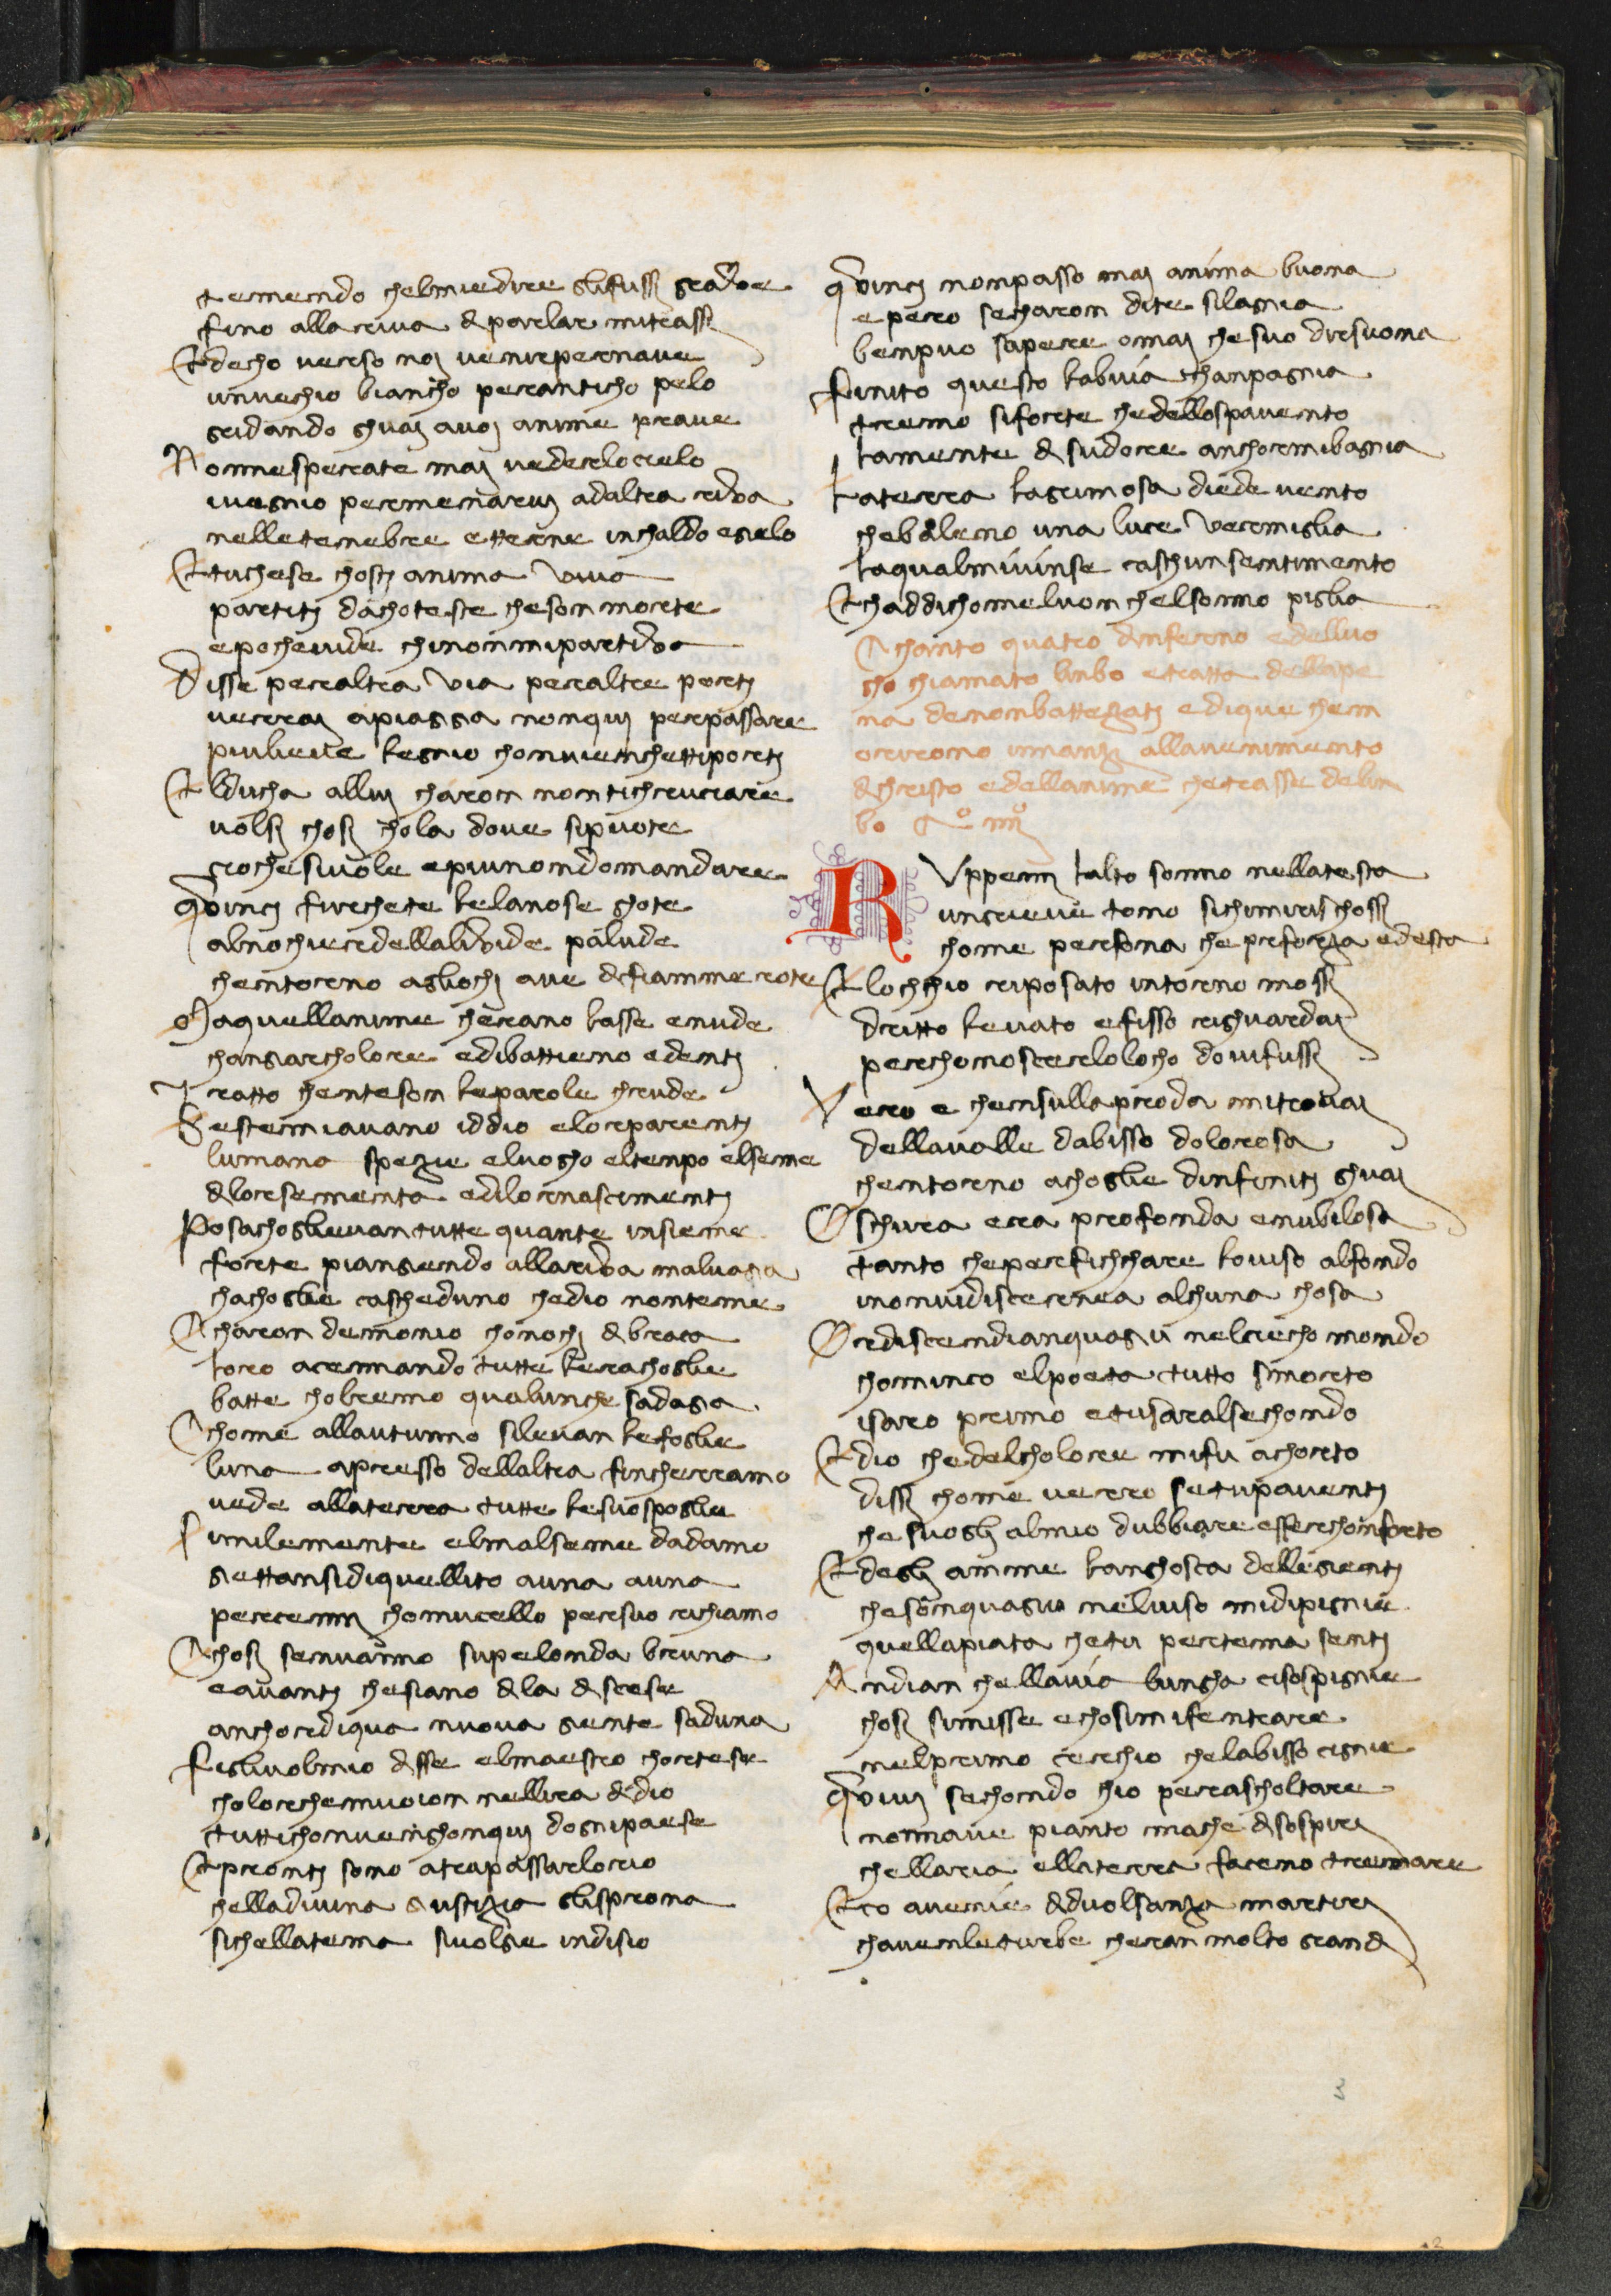 temendo chelmiedire glifussj gradoe
fino alla riva & parlar mitrassj
Et decho verso noj venirepernave
unvechio biancho perantichо pelo
gridando ghuaj avoj anime prave
Nonnesperate maj vederelocielo
ivegnio permenarvj adaltra riva
nelletenebre etterne inchaldo egielo
Ettuchese chostj anima viva
partitj dachoteste cheson morte
epocheiuide chinonmipartiva
Disse peraltra via peraltre portj
verraj apiaggia nonquj perpassare
piulieve legnio chonvienchettiportj
Elducha alluj charon nontichrucciare
volsj chosj chola dove sipuote
cioche sivole epiunondomandare
quincj furchete lelanose ghote
alnochieredellalivide palude
chentorno agliochj ave difiamme rote
Maquellanime cherano lasse enude
changiarcholore edibattieno edentj
ratto chenteson leparole chrude
Bestemiavano iddio elorparentj
lumana spezie eluogho eltenpo elseme
dilorsementa edilornascimentj
Posachoglievan tutte quante insieme
forte piangiendo allariva malvagia
chachoglie cascheduno chedio nonteme
Charon demonio chonochj dibracia
loro acennando tutte lerachoglie
batte cholremo qualunche sadagia
Chome allautunno silevan lefoglie
luna apresso dellaltra fincherramo
vede allaterra tutte lesuospoglie
Similemente elmalseme dadamo
gettansidiquellito auna auna
percennj chomucello persuo richiamo
Chosj senvanno supelonda bruna
eavantj chesiano dila discese
anchordiqua nuova giente saduna
Figliuolmio disse elmaestro chortese
cholorchemuoion nellira didio
tuttichonvenghonquj dognipaese
Eprontj sono atrapassarlorio
chelladivina giustizia glisprona
sichellatema sivolgie indisio
quincj nonpassa maj anima buona
epero secharon dite silagnia
benpuo sapere omaj chesuo dirsuona
Finito questo labuia chanpagnia
tremo siforte chedellospavento
lamente di sudore anchormibagnia
Laterra lagrimosa diede vento
chebaleno una luce vermiglia
laqualmivinse caschunsentimento
Echaddichomeluon chelsonno piglia
Chanto quatro dinferno edelluo
gho chiamato linbo etratta dellape
na denonbattezatj edique chem
orirono innanzj allavenimento
dichristo edellanime chetrasse delin
bo Co iiijo
Ruppemj lalto sonno nellatesta
ungrieve tono sichimiriscossj
chome persona cheperforza edesta
Elochchio riposato intorno mossj
dritto levato efisso righuardaj
perchonoscerelolocho dovifussj
Vero e chensulla proda mitrovaj
dellavalle dabisso dolorosa
chentorno achoglie dinfinitj ghuaj
Oschura era profonda enubilosa
tanto cheperfichchare loviso alfondo
inonvidiscernea alchuna chosa
Ordiscendianquagiu nelciecho mondo
chominco elpoeta tutto smorto
isaro primo etusaralsechondo
Edio chedelcholore mifu achorto
dissj chome verro setupaventj
chesuoglj almio dubbiare esserchonforto
Edeglj amme languoscia dellegientj
chesonquagiu nelviso midipignie
quellapiata chetu pertema sentj
Andian chellavia lungha cisospignie
chosj simisse echosimifentrare
nelprimo cerchio chelabisso cignie
Quivj sechondo chio perascholtare
nonnave pianto mache disospirj
chellaria ellaterra facieno tremare
Eco avenie diduolsanza martirj
chavenleturbe cheran molto grandj
3